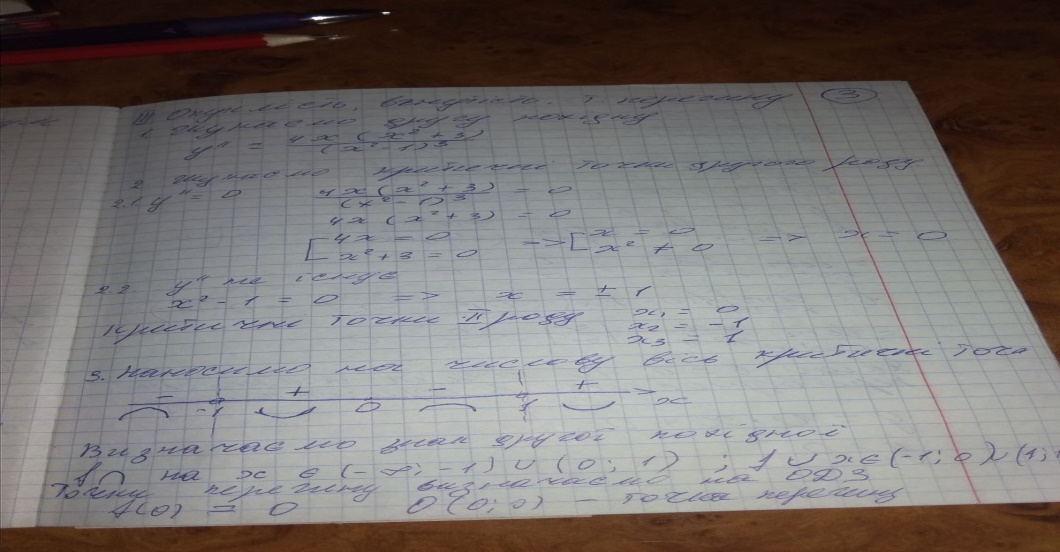 ③
III Опуклість, вгнутість, т. перегину
1. Шукаємо другу похідну
y'' = 4x(x² + 3) / (x² - 1)³
2. Шукаємо критичні точки другого роду
2.1. y'' = 0 4x(x² + 3) / (x² - 1)³ = 0
4x(x² + 3) = 0
[ 4x = 0 x² + 3 = 0 => [ x = 0 x² ≠ 0 => x = 0
2.2. y'' не існує
x² - 1 = 0 => x = ± 1
Критичні точки II роду x₁ = 0
x₂ = -1
x₃ = 1
3. Наносимо на числову вісь критичні точк
- + - +
-1 0 1 x
Визначаємо знак другої похідної
f ∩ на x ∈ (-∞; -1) ∪ (0; 1) ; f ∪ x ∈ (-1; 0) ∪ (1;
Точки перегину визначаємо на ОДЗ
f(0) = 0 O(0; 0) - точка перегину